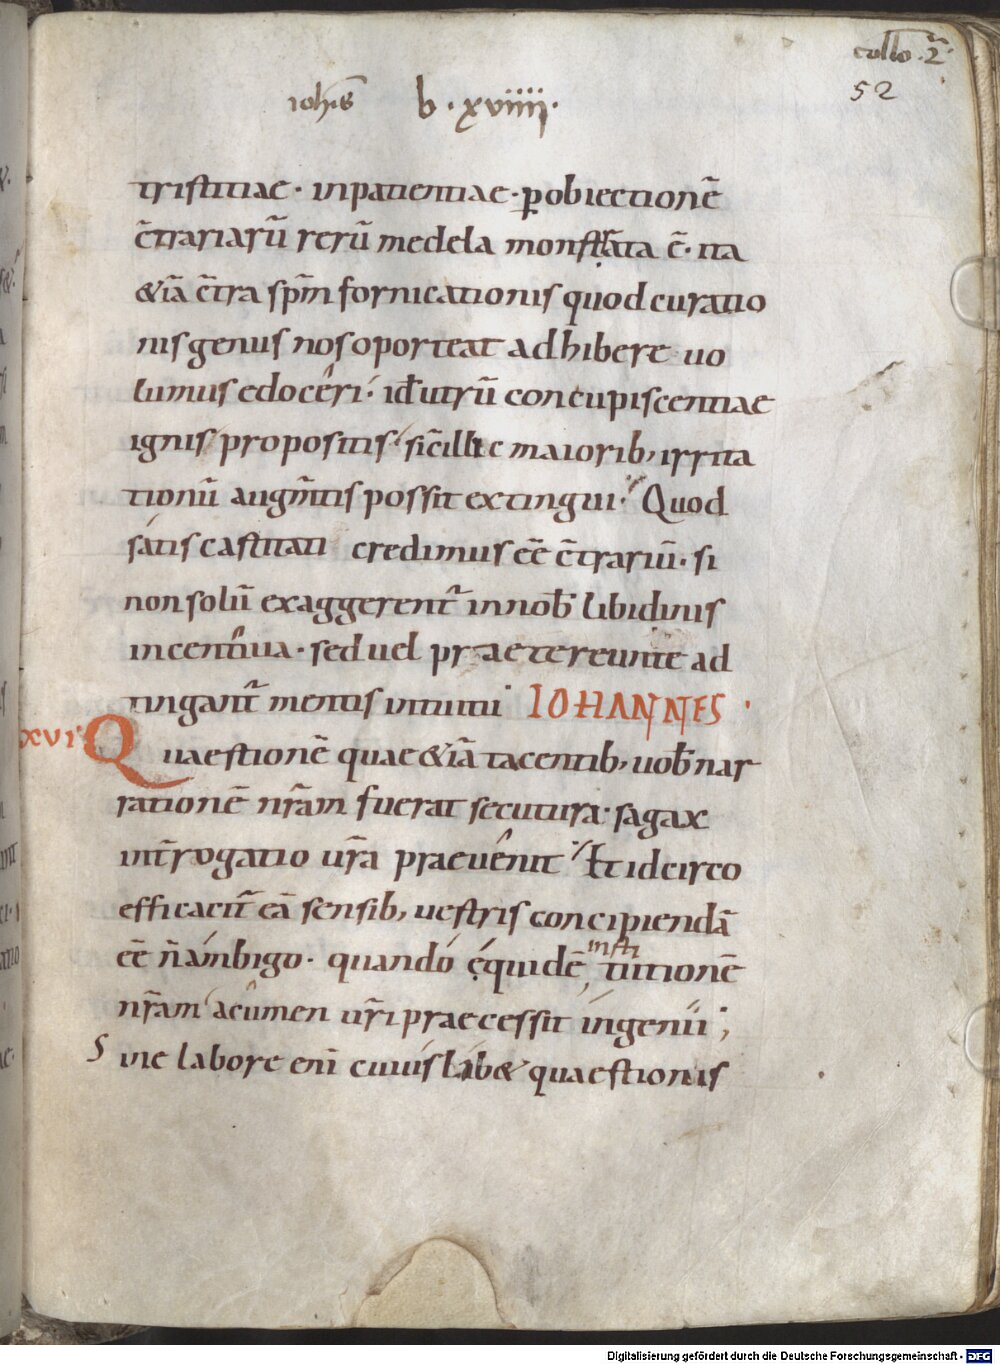 collo · 2
52
ioh̅s b · xviiii ·
tristitiae · inpatientiae · ꝑ obiectionē
c̄trariarū rerū medela monst̄rata ē · ita
&iā c̄tra sp̄m fornicationis quod curatio
nis genus nos oporteat adhibere uo
lumus edoceri · id utrū concupiscentiae
ignis propositis sic illic maiorib; irrita
tionū augm̄tis possit extingui · Quod
satis castitati credimus eē c̄trariū · si
non solū exaggerent̄ in nob̄ libidinis
incentiua · sed uel praetereunte ad
tingant̄ mentis intuitu IOHANNES ·
xvi Quaestionē quae &iā tacentib; uob̄ nar
rationē nr̄am fuerat secutura · sagax
int̄rogatio ur̄a praeuenit Et idcirco
efficacit̄ eā sensib; uestris concipiendā
eē n̄ ambigo · quando ęquidē insti tutionē
nr̄am acumen ur̄i praecessit ingenii ;
Sine labore eni̅ cuiuslib& quaestionis
Digitalisierung gefördert durch die Deutsche Forschungsgemeinschaft - DFG